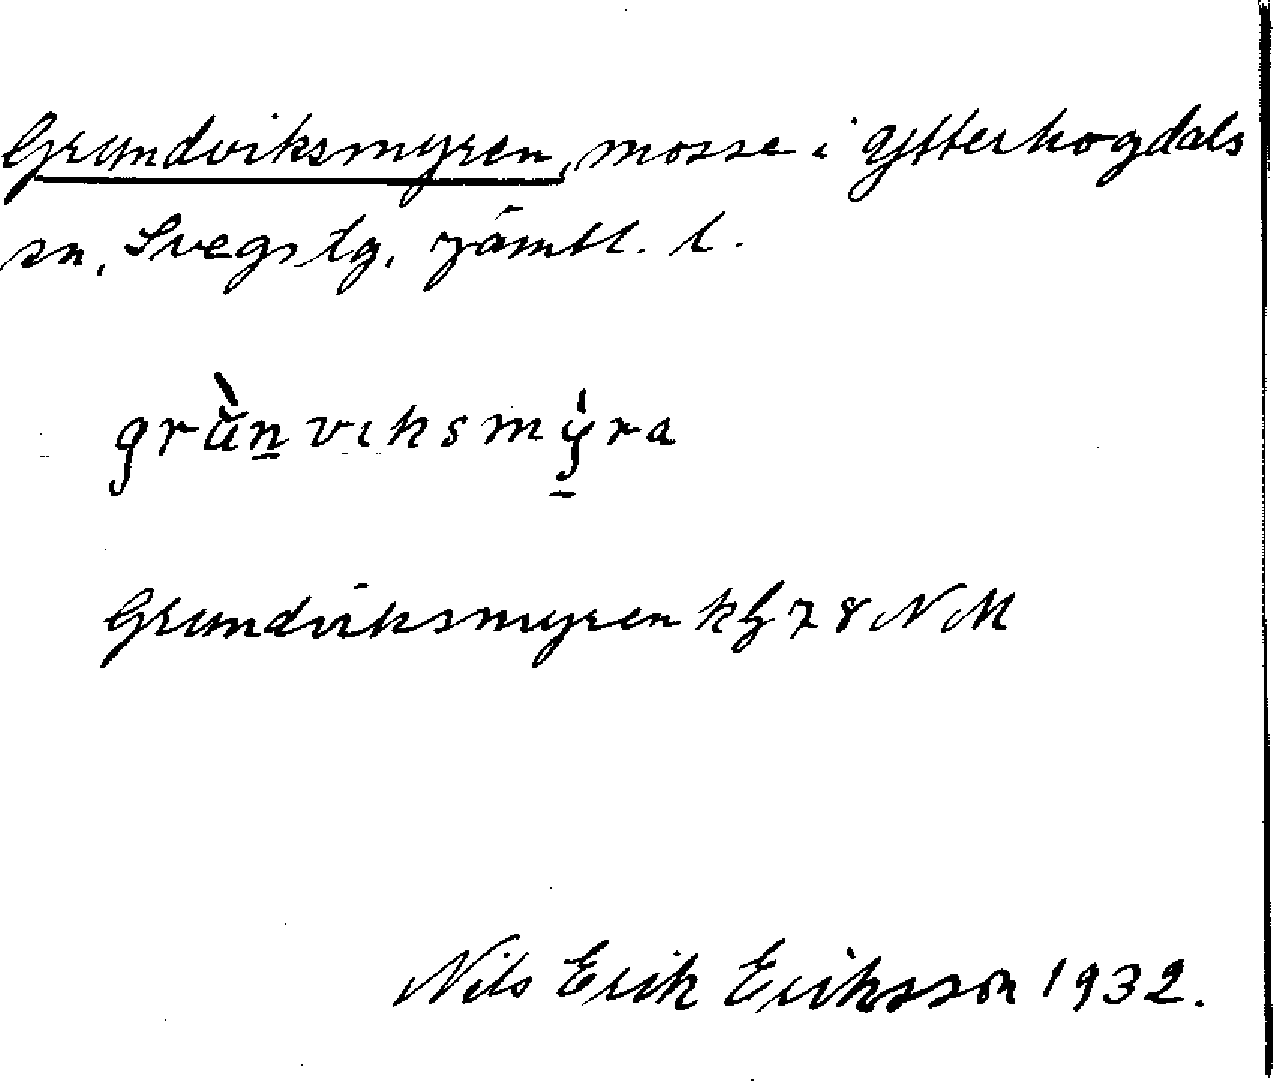 Grundviksmyren, mosse i Ytterhogdals
sn, Svegs tg, Jämtl. l.
grùn̲viksmẏ̲ra
Grundviksmyren kb 78 NM
Nils Erik Eriksson 1932.